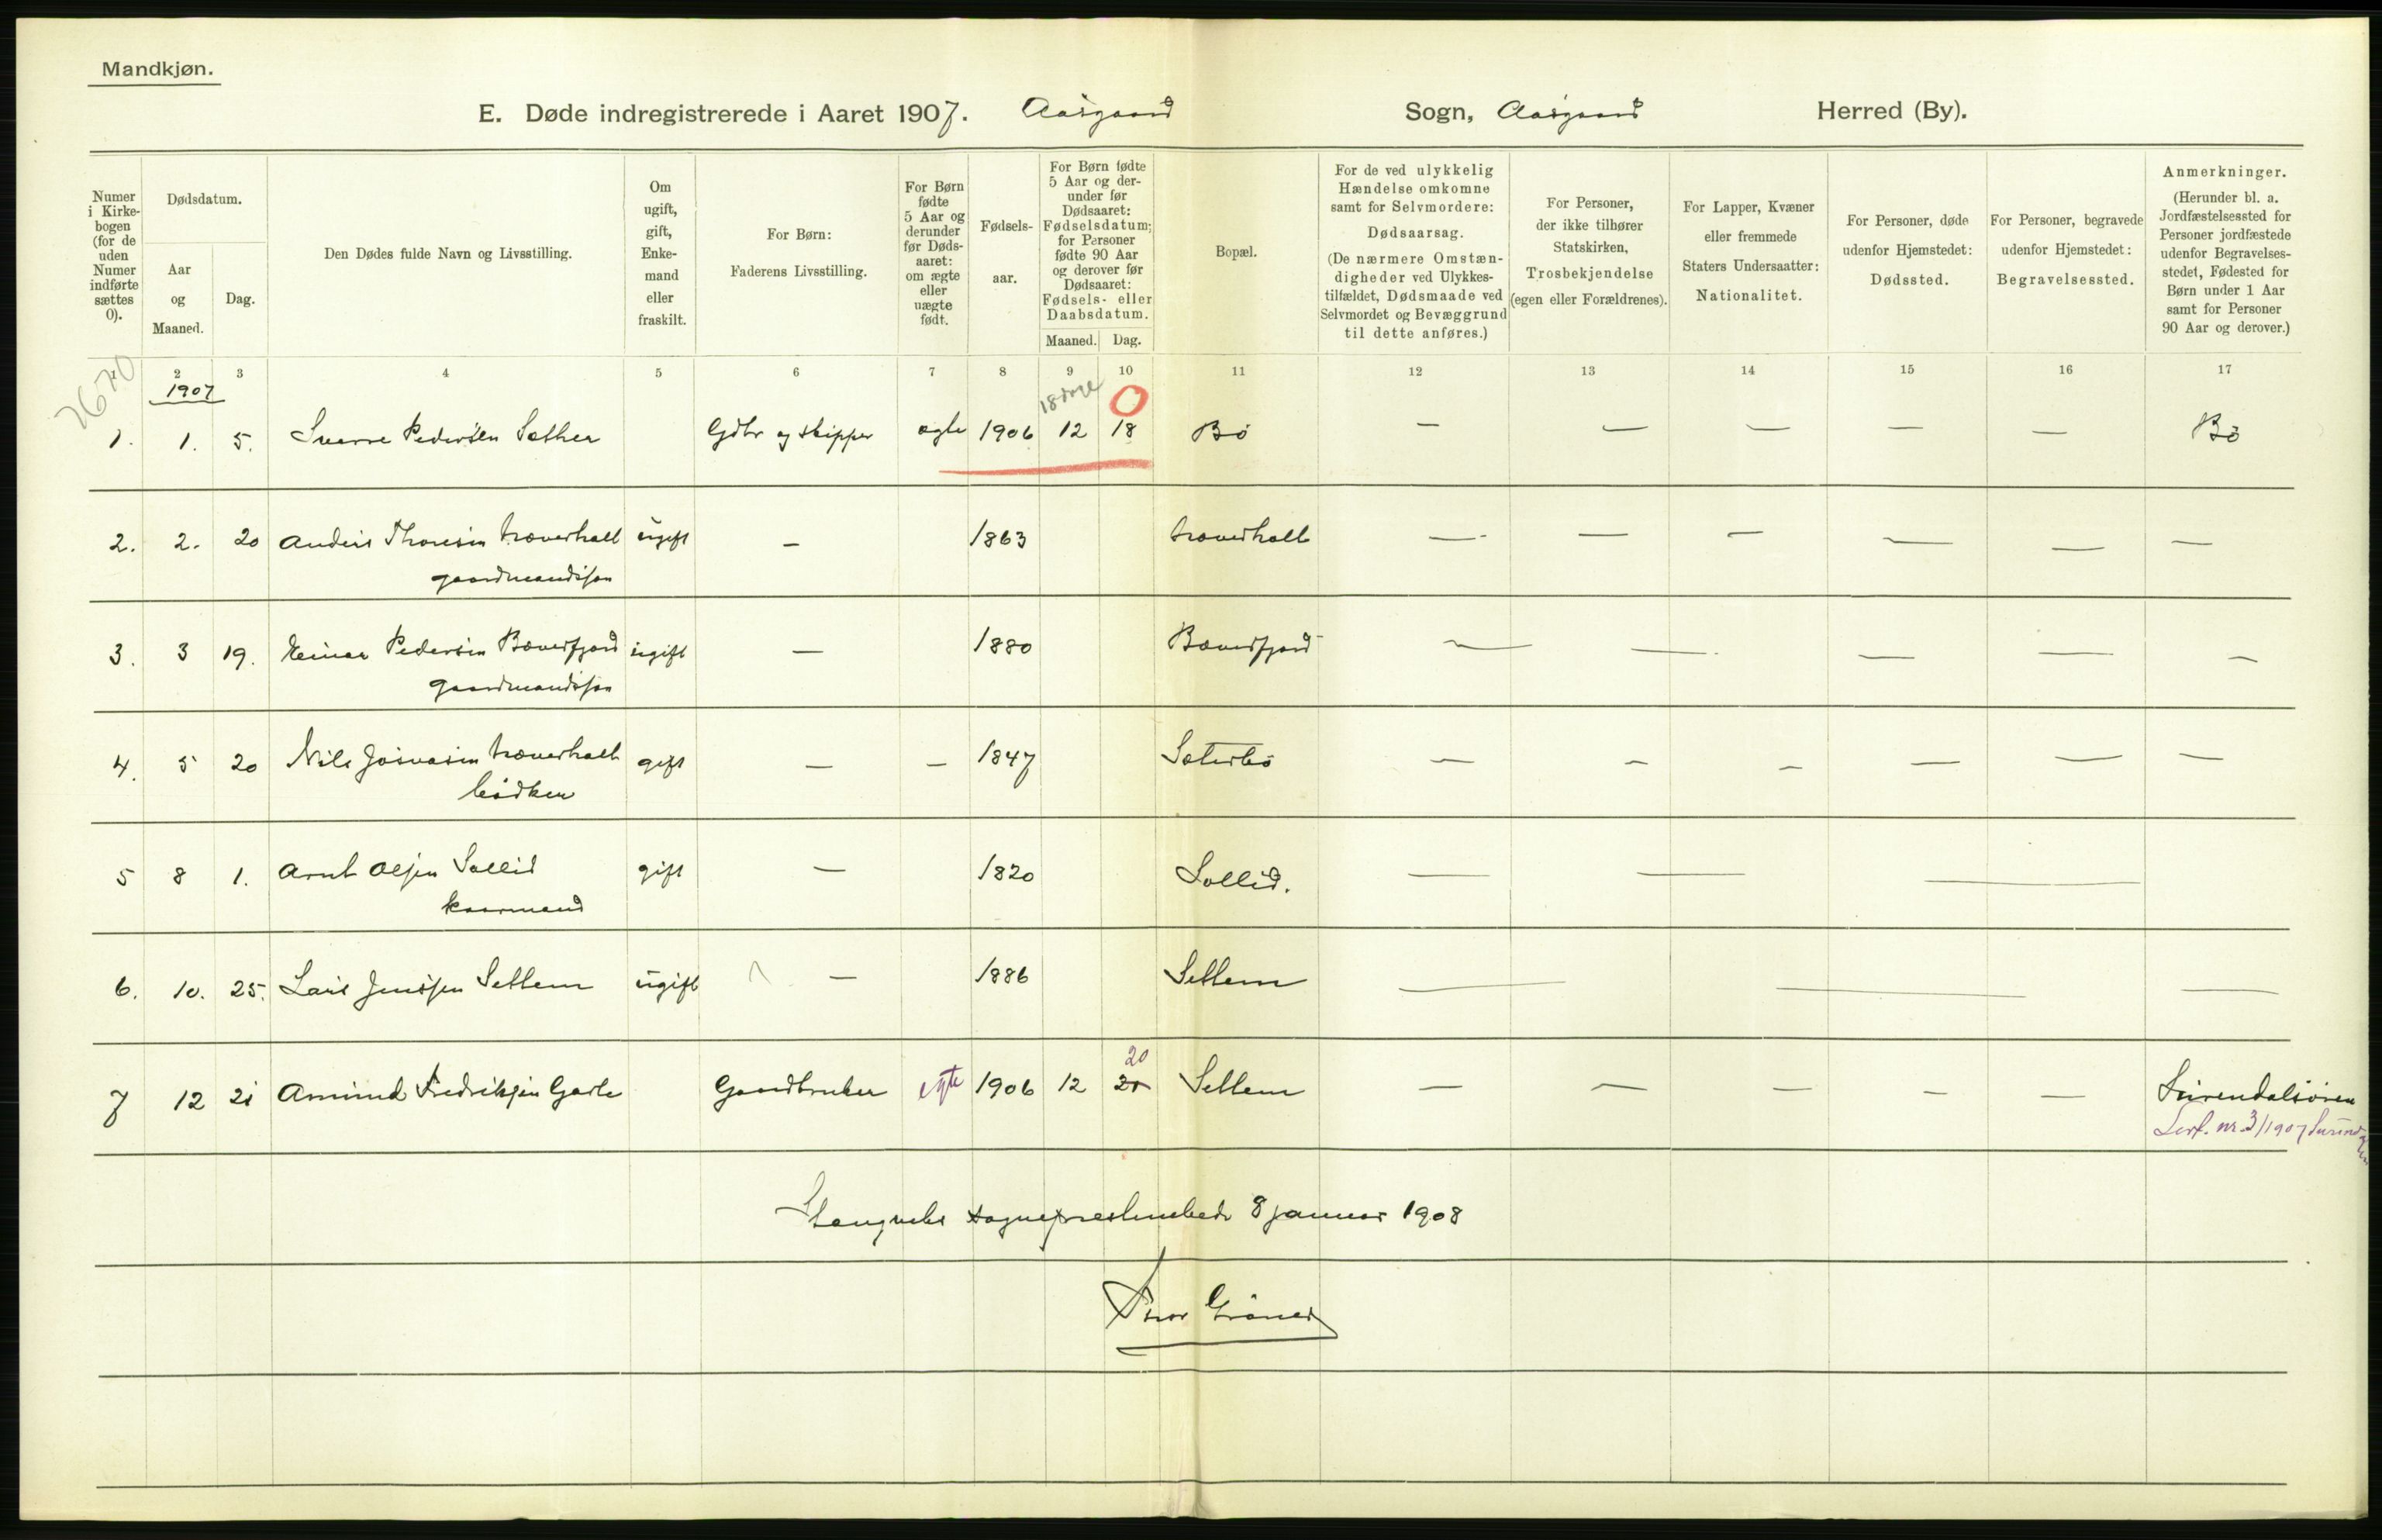 Mandkjøn.
E. Døde indregistrerede i Aaret 1907. Aasgaard Sogn, Aasgaard Herred (By).
Numer i Kirkebogen (for de uden Numer indførte sættes 0).
Dødsdatum.
Aar og Maaned.
Dag.
Den Dødes fulde Navn og Livsstilling.
Om ugift, gift, Enkemand eller fraskilt.
For Børn: Faderens Livsstilling.
For Børn fødte 5 Aar og derunder før Dødsaaret: om ægte eller uægte født.
Fødselsaar.
For Børn fødte 5 Aar og derunder før Dødsaaret: Fødselsdatum; for Personer fødte 90 Aar og derover før Dødsaaret: Fødsels- eller Daabsdatum.
Maaned. Dag.
Bopæl.
For de ved ulykkelig Hændelse omkomne samt for Selvmordere: Dødsaarsag. (De nærmere Omstændigheder ved Ulykkestilfældet, Dødsmaade ved Selvmordet og Bevæggrund til dette anføres.)
For Personer, der ikke tilhører Statskirken, Trosbekjendelse (egen eller Forældrenes).
For Lapper, Kvæner eller fremmede Staters Undersaatter: Nationalitet.
For Personer, døde udenfor Hjemstedet: Dødssted.
For Personer, begravede udenfor Hjemstedet: Begravelsessted.
Anmerkninger. (Herunder bl. a. Jordfæstelsessted for Personer jordfæstede udenfor Begravelsesstedet, Fødested for Børn under 1 Aar samt for Personer 90 Aar og derover.)
1 2 3 4 5 6 7 8 9 10 11 12 13 14 15 16 17
1907
1. 1. 5. Sverre Pedersen Sæther Gdbr og skipper ægte 1906 12 18 Bö — — — — — Bö
2. 2. 20 Anders Thoresen Træverhalt ugift — 1863 Træverhalt — — — — — —
gaardmandssøn
3. 3 19. Einar Pedersen Bæverfjord ugift — 1880 Bæverfjord — — — — —
gaardmandssøn
4. 5 20 Nils Josvasen Træverhalt gift — — 1847 Sæterbö — — — — — —
bödker
5 8 1. Arnt Olsen Sollid gift — 1820 Sollid. — — —
kaarmand
6. 10. 25. Lars Jenssen Settem ugift — 1886 Settem — — —
7 12 21 Amund Fredriksen Gaardbruker egte 1906 12 20 Settem — — — — — Surendalsøren
nr. 3/1907
Stangviks sogneprestembede 8 januar 1908